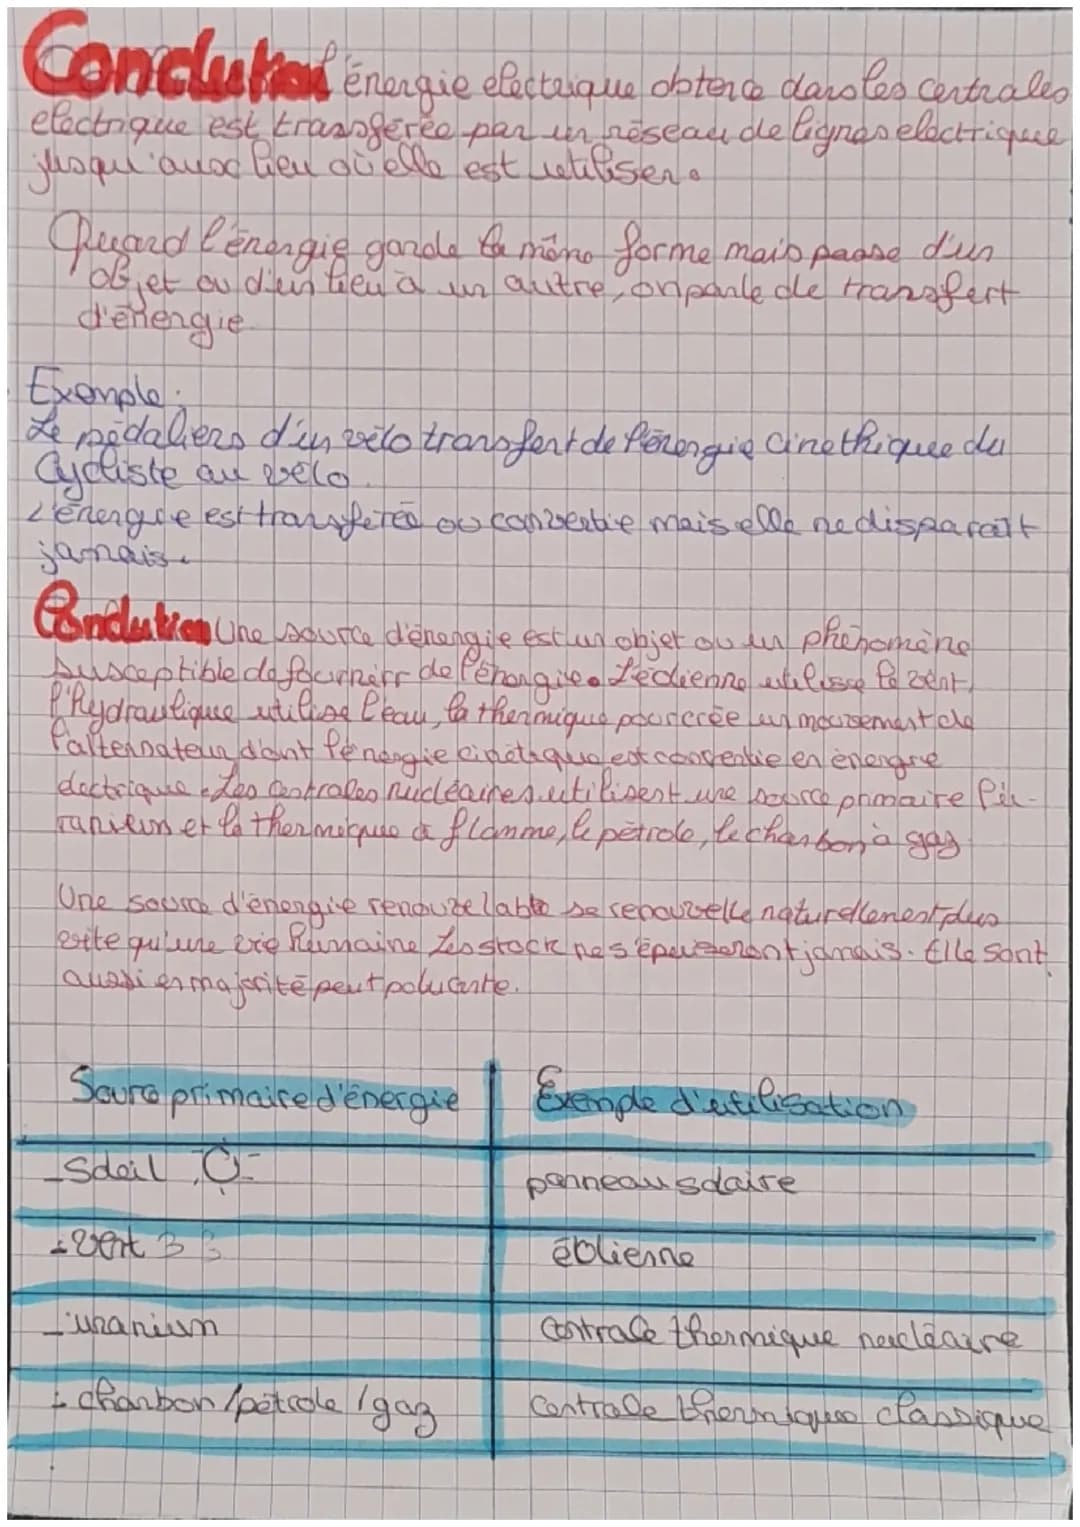 Conclution l'énergie electrique obtence dans les centrales
electrique est transférée par un réseau de lignes electrique
jusqu'aux lieu où elle est utiliser.
Quand l'énergie garde la même forme mais passe d'un
objet ou d'un lieu à un autre, on parle de transfert
d'énergie
Exemple :
Le pédaliers d'un vélo transfert de l'énergie cinethique du
Cycliste au vélo.
L'énergie est transférée ou convertie mais elle ne disparaît
jamais.
Conclution Une source d'énergie est un objet ou un phénomène
susceptible de fournirr de l'énergie. L'éolienne utilisse le vent,
l'hydraulique utilise l'eau, la thermique pour crée un mouvement de
l'alternateur d'ont l'énergie cinétique est convertie en énergie
electrique. Les centrales nucléaires utilisent une source primaire l'u-
ranium et la thermique à flamme, le pétrole, le charbon à gaz
Une source d'énergie renouvelable se renouvelle naturellement plus
vite qu'une vie humaine Les stock ne s'épuiseront jamais. Elle sont
aussi en majorité peut poluante.
Source primaire d'énergie Exemple d'utilisation
- Soleil panneau solaire
- vent éolienne
- uranium Centrale thermique nucléaire
- charbon / pétrole / gaz Centrale thermique classique